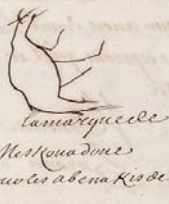 la marque de
Neskouadoue
unoles abenakis de